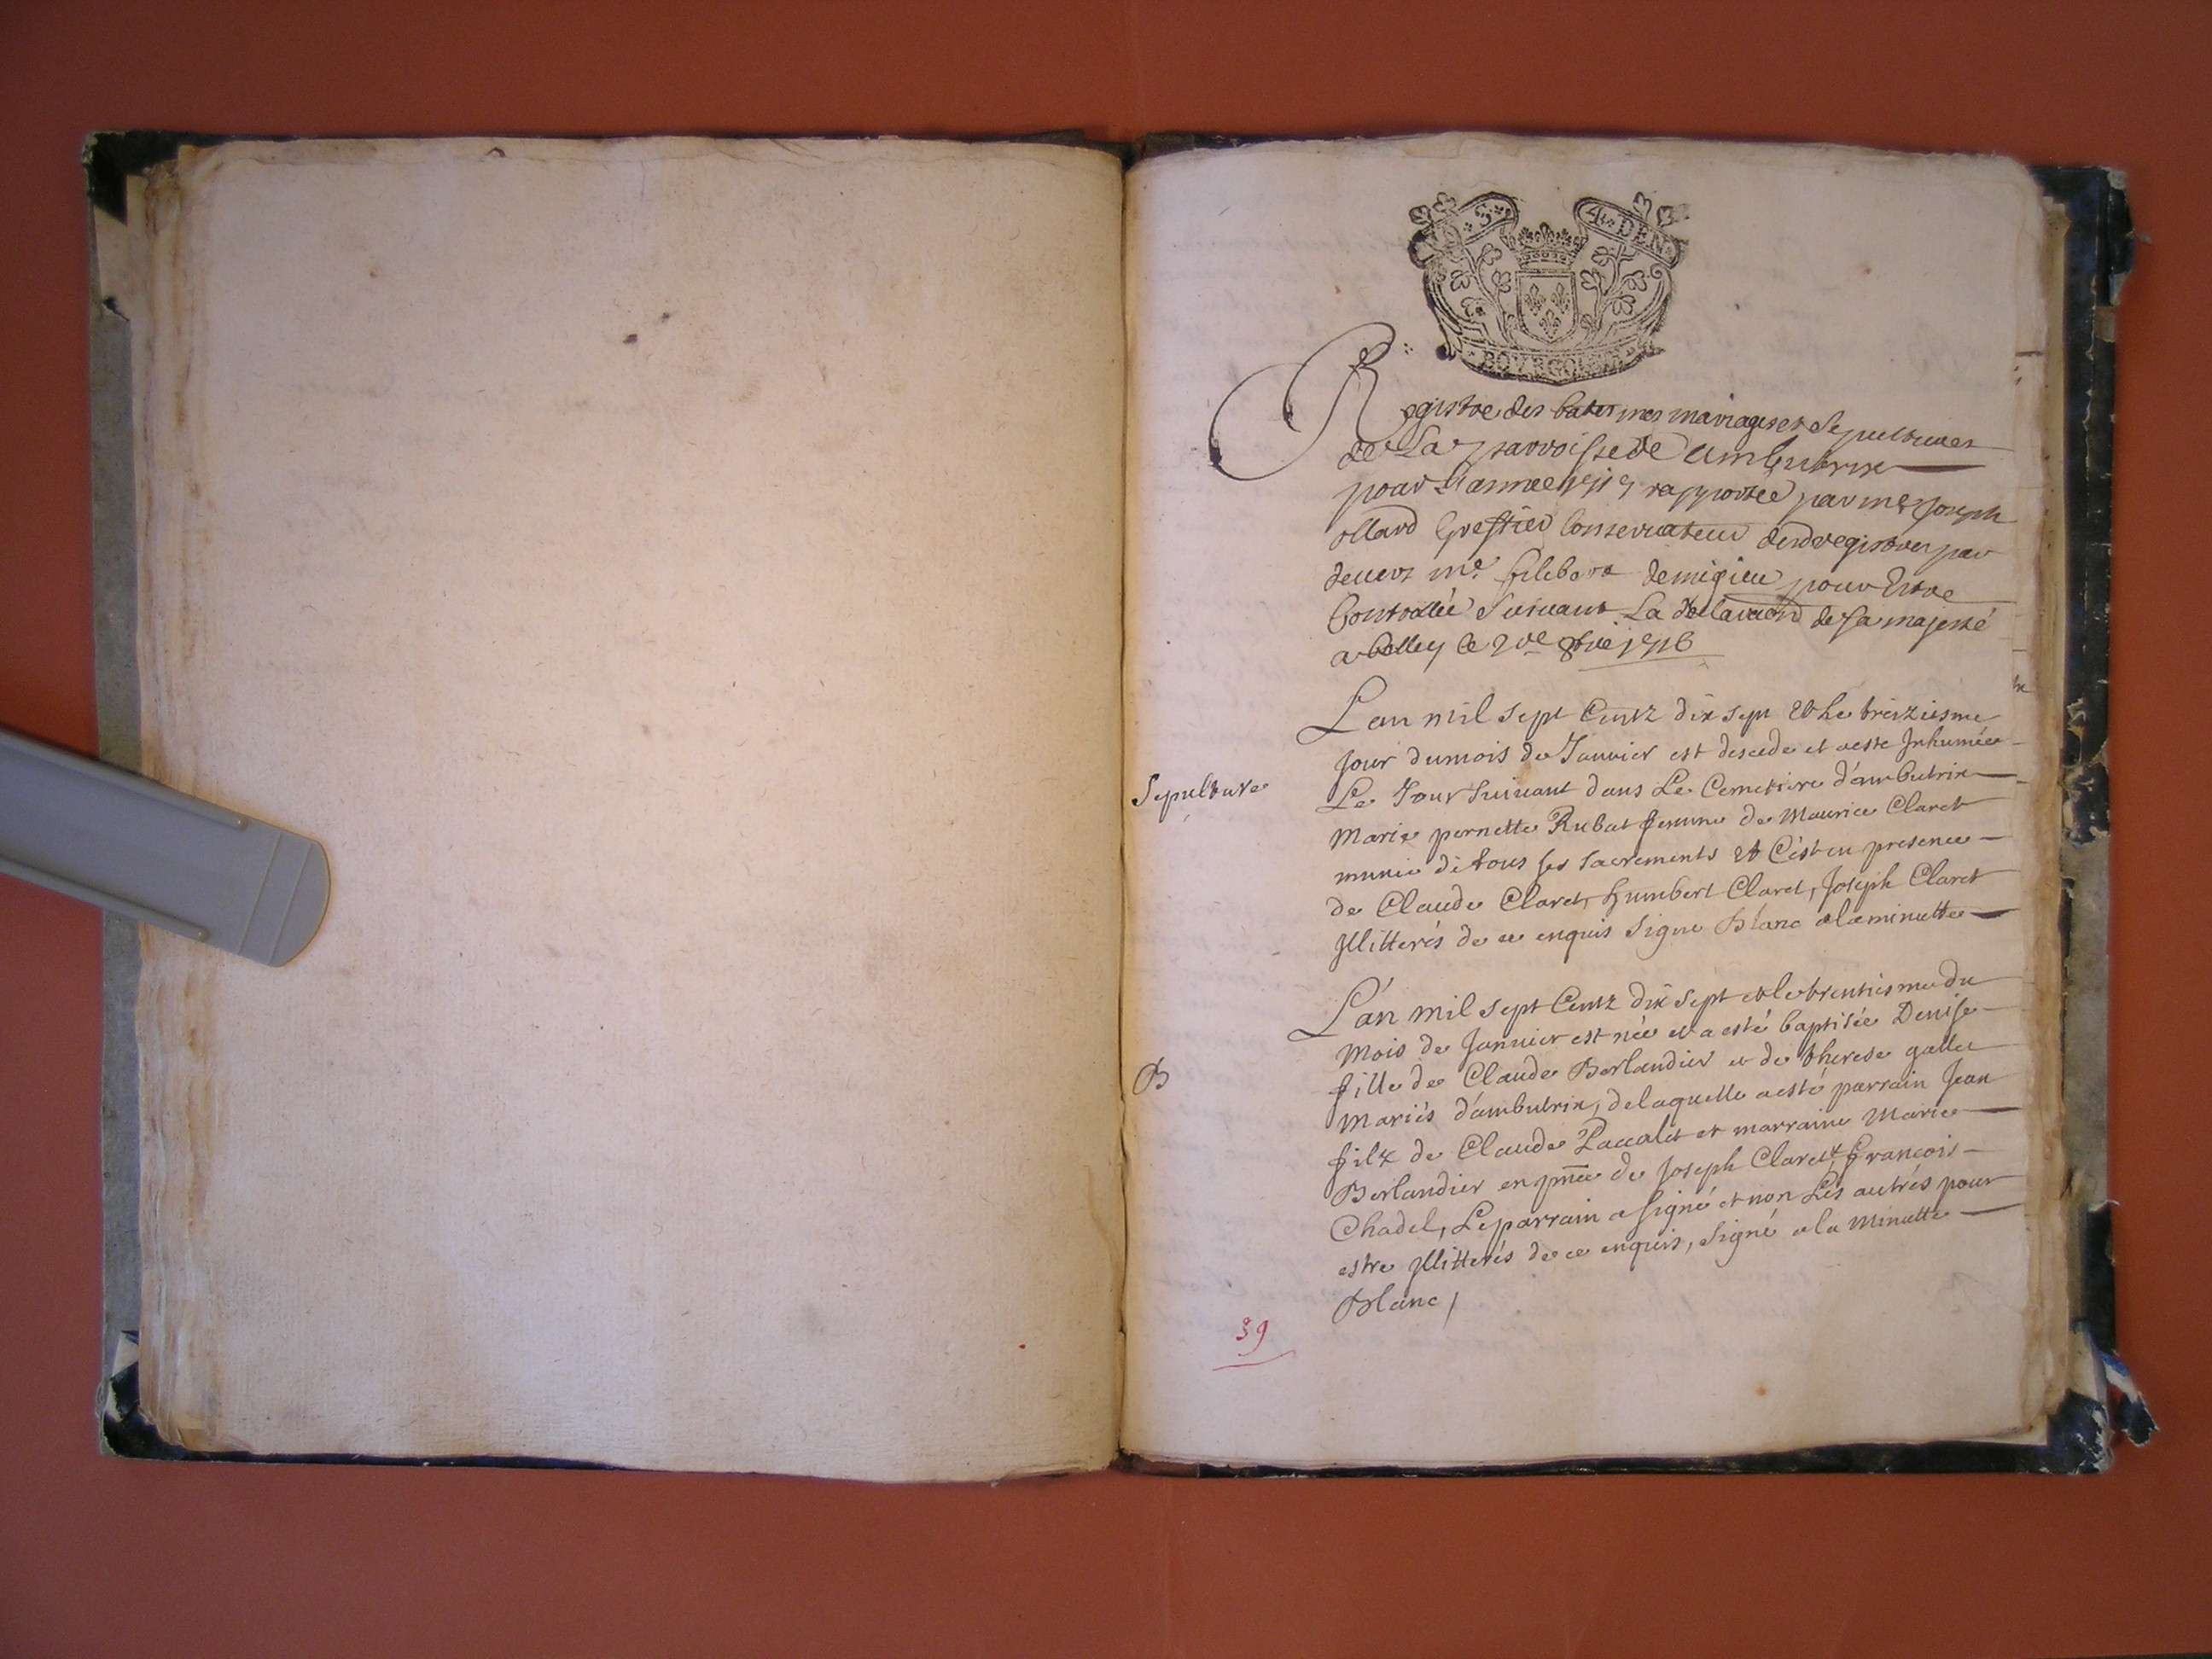 S
4 DEN
BOVRGOGNE
Registre des batesmes mariages et Sepultures
de La parroisse de Ambutrix
pour L'annee 1717 rapportée par me Joseph
ollard Greffier Conservateur desd registres par
devers me de migieu pour Estre
Controllée Suivant La declaraon de sa majesté
a belley le 8bre 1716
L'an mil sept Centz dix sept Et le treiziesme
Jour dumois de Janvier est decede et aeste Jnhumée
Sepulture
Le Jour Suivant dans Le Cemetiere d'ambutrix
Marie pernette Rubat femme de Maurice Claret
munie de tous ses sacrements et C'est en presence
de Claude Claret, humbert Claret, Joseph Claret
Jllitterés de ce enquis Signe Blanc alaminutte
L'an mil sept Centz dix sept et letrentiesme du
mois de Janvier est née et a esté baptisée Denise
B
fille de Claude Berlandier et de therese gallet
mariés d'ambutrix, delaquelle aesté parrain Jean
filz de Claude Paccalet et marraine Marie
Berlandier en pnce de Joseph Claret et françois
Chadel, Le parrain a signé et non Les autrés pour
estre Jllitterés de ce enquis, Signé a la Minutte
Blanc /
39